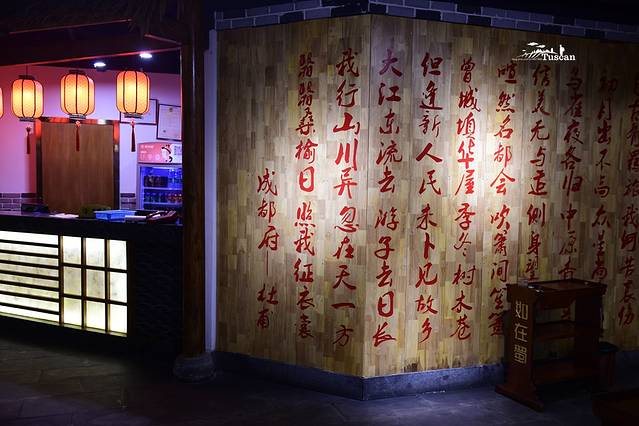 成都府—杜甫
翳翳桑榆日 照我征衣裳
我行山川异 忽在天一方
大江东流去 游子去日长
但逢新人民 未卜见故乡
曾城填华屋 季冬树木苍
喧然名都会 吹箫间笙簧
信美无与适 侧身望
鸟雀夜各归 中原杳
初月出不高 众星尚
我何苦哀伤
如在蜀
Tuscan